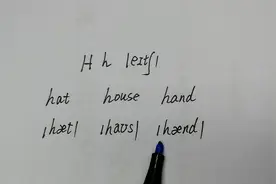 H h /eɪtʃ/
hat house hand
/hæt/ /haʊs/ /hænd/